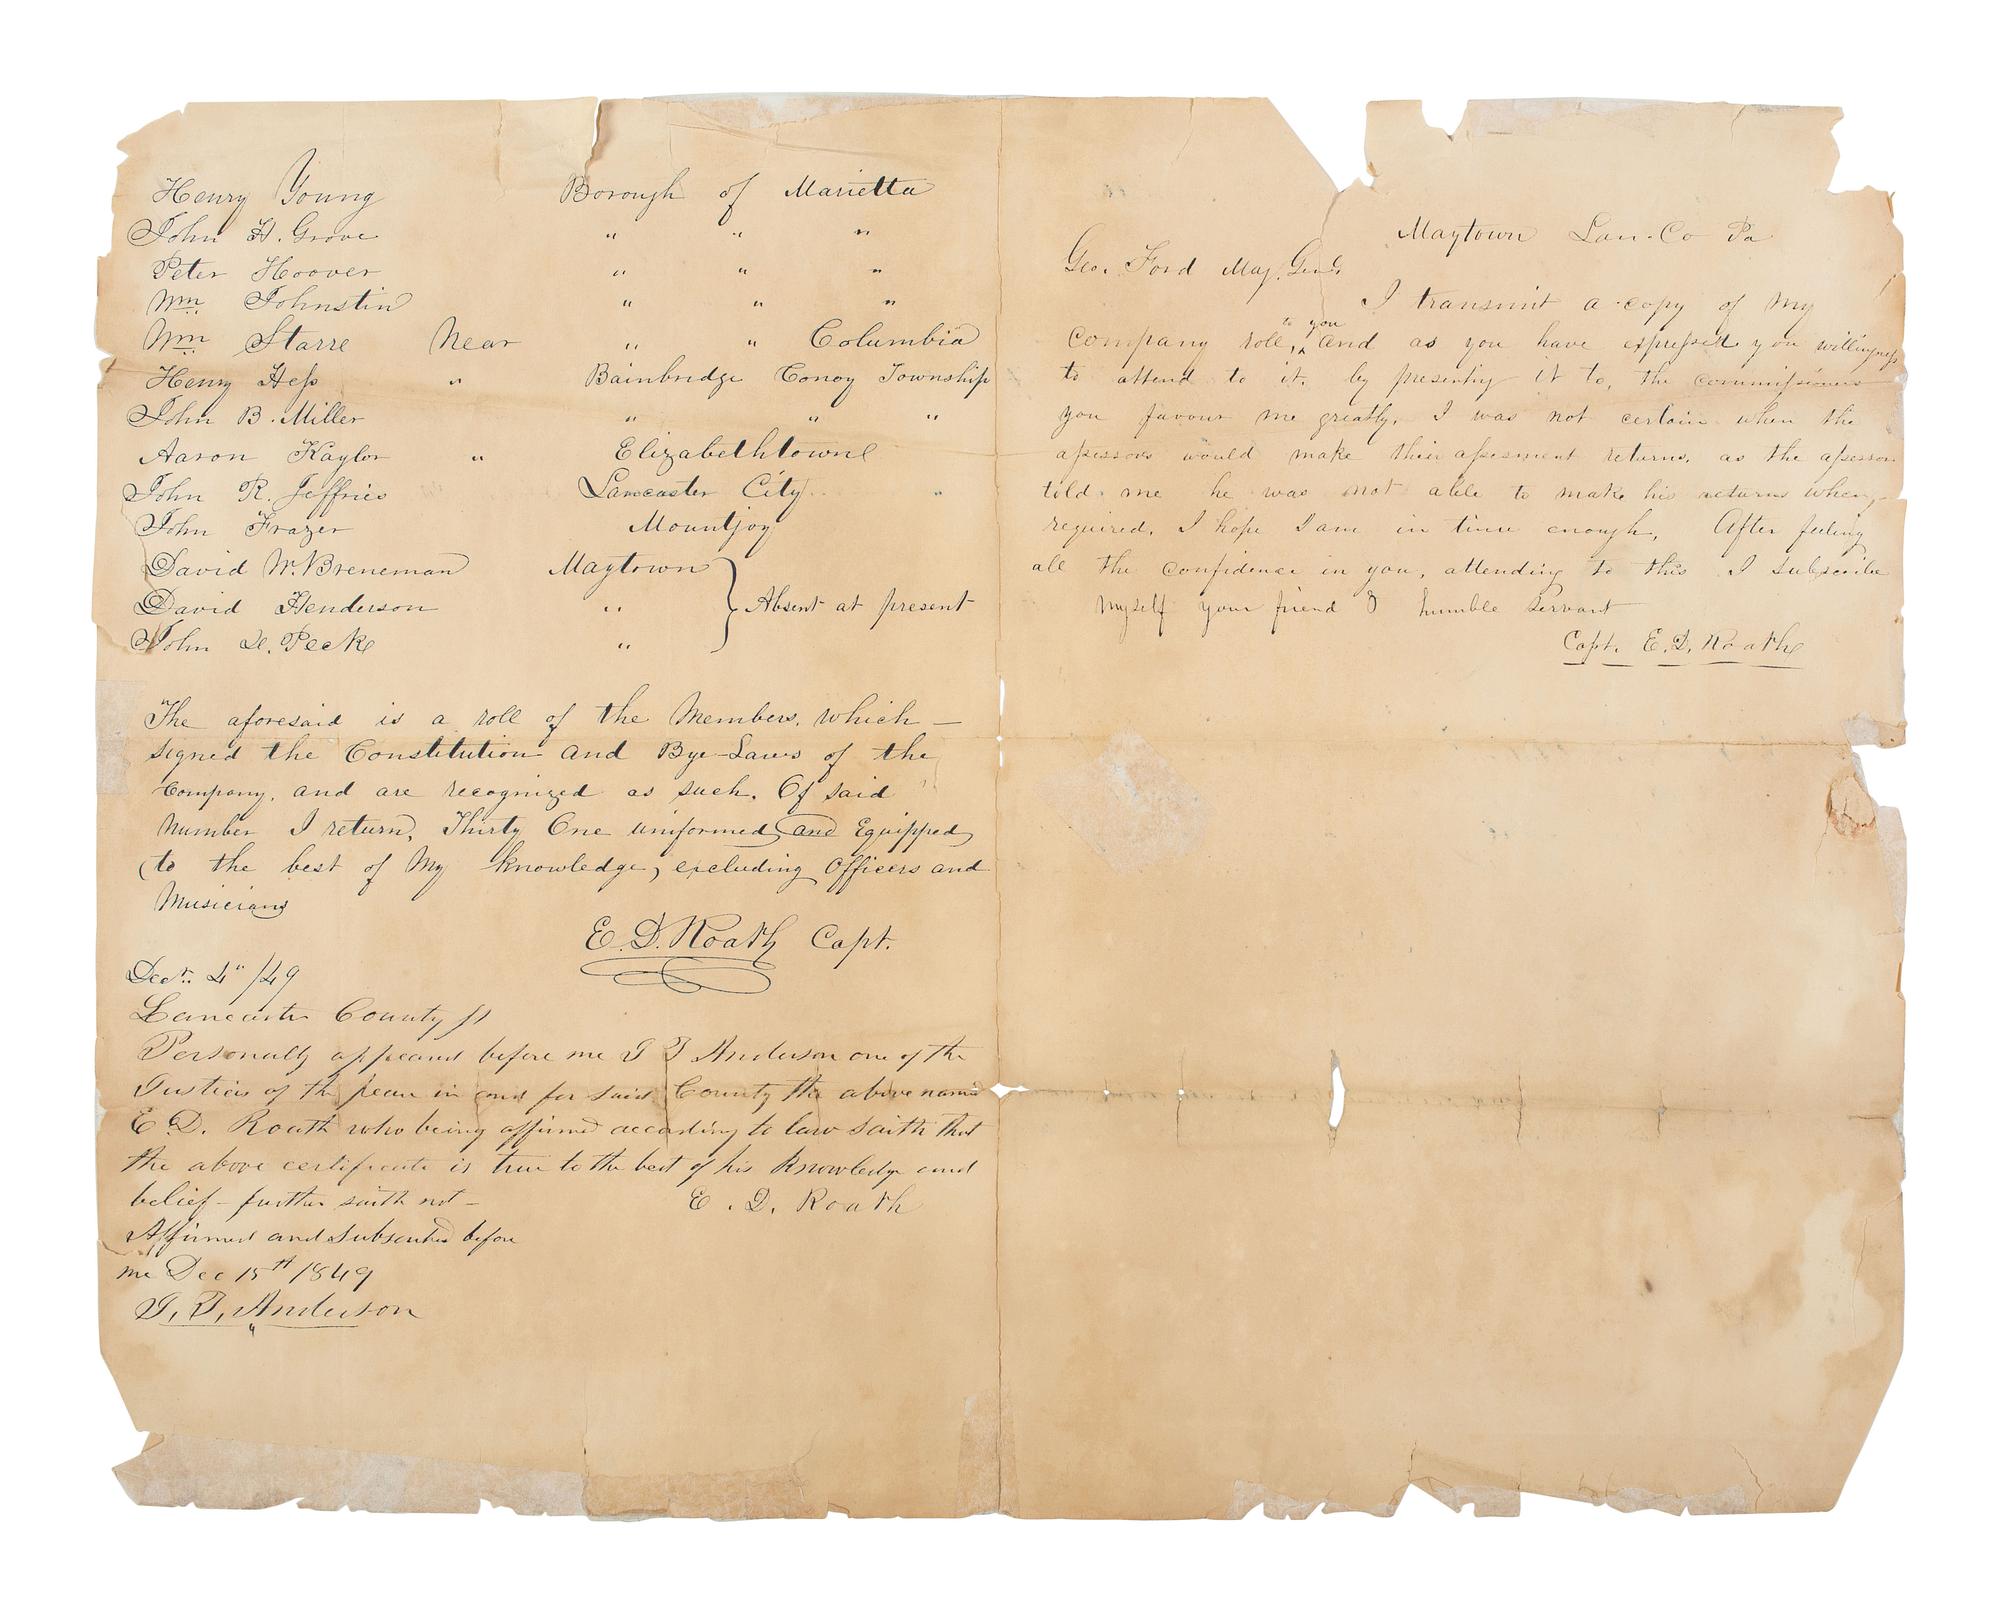 Henry Young Borough of Marietta
John H. Grove " " "
Peter Hoover " " "
Wm. Johnstin " " "
Wm Starre Near " " Columbia
Henry Hess " Bainbridge Conoy Township
John B. Miller " " "
Aaron Kaylor " Elizabethtown
John R. Jeffries Lancaster City "
John Frazer Mountjoy
David W. Breneman Maytown
David Henderson " } Absent at present
John D. Peck "
The aforesaid is a roll of the Members, which –
signed the Constitution and Bye-Laws of the
Company, and are recognized as such. Of said
number I return, Thirty One uniformed and Equipped,
(to the best of My knowledge, excluding Officers and
Musicians
E. D. Roath Capt.
Decr. 4" /49
Lancaster County ss
Personally appeared before me J T Anderson one of the
Justices of the peace in and for said County the above named
E. D. Roath who being affirmed according to law saith that
the above certificate is true to the best of his knowledge and
belief – further saith not –
E. D. Roath
Affirmed and subscribed before
me Dec 15th 1849
J. T. Anderson
Maytown Lan. Co Pa
Geo. Ford Maj. Genl.
I transmit a copy of My
company roll, to you and as you have expressed you willingness
to attend to it. by presenting it to, the commissioners
you favour me greatly, I was not certain when the
assessors would make their assesment returns, as the assessor
told me he was not able to make his returns when,
required, I hope I am in time enough, After feeling
all the confidence in you, attending to this I subscribe
myself your friend & humble servant
Capt. E. D. Roath